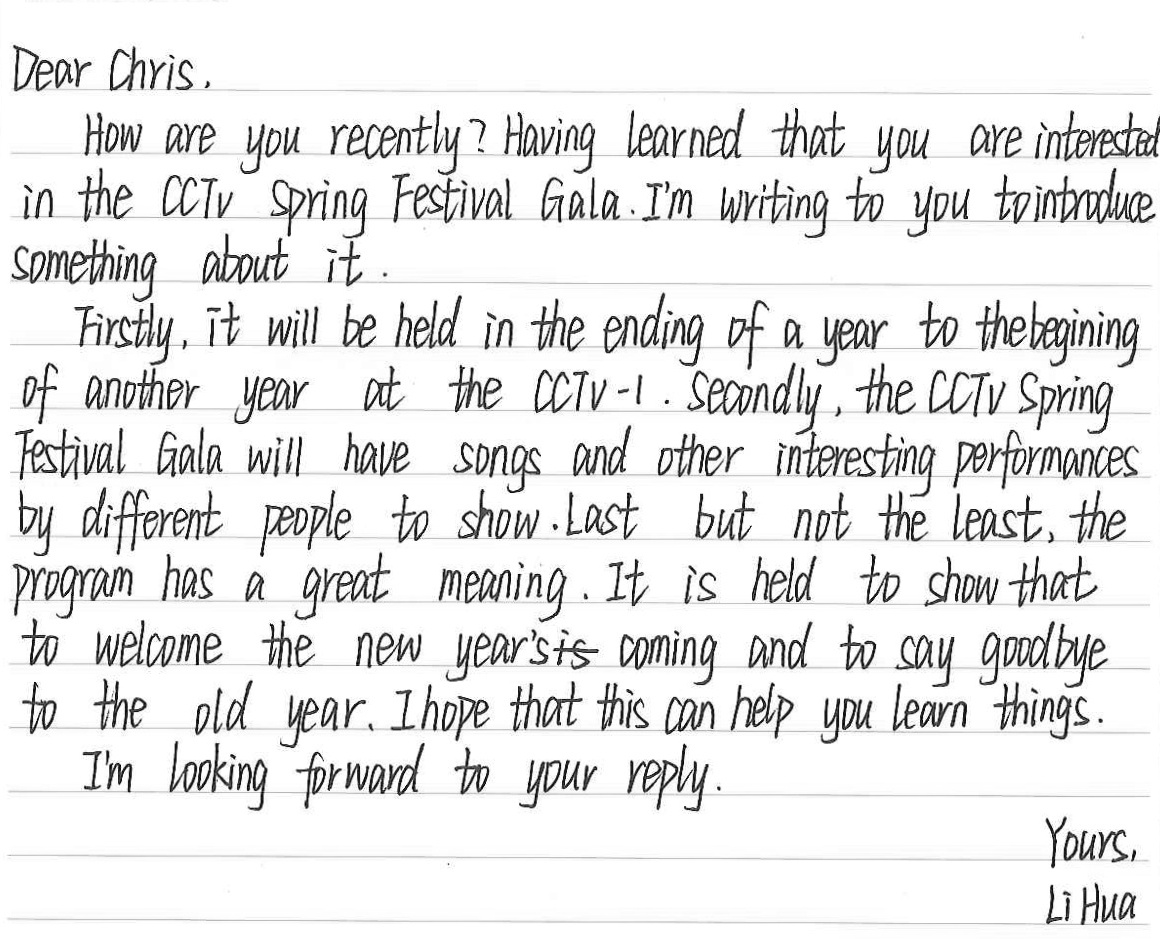 Dear Chris.
How are you recently? Having learned that you are interested
in the CCTV Spring Festival Gala. I'm writing to you to introduce
something about it.
Firstly, it will be held in the ending of a year to the begining
of another year at the CCTV-1. Secondly, the CCTV Spring
Festival Gala will have songs and other interesting performances
by different people to show. Last but not the least, the
program has a great meaning. It is held to show that
to welcome the new year's is coming and to say goodbye
to the old year. I hope that this can help you learn things.
I'm looking forward to your reply.
Yours,
Li Hua